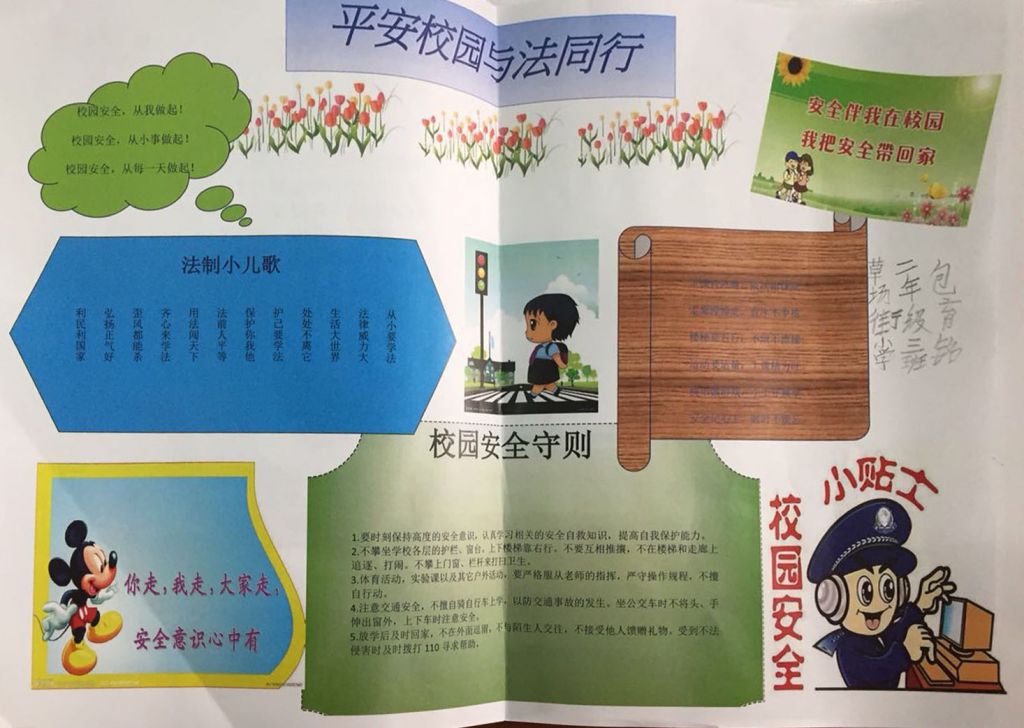 平安校园与法同行
校园安全，从我做起！
校园安全，从小事做起！
校园安全，从每一天做起！
安全伴我在校园
我把安全带回家
法制小儿歌
从小要学法
法律威力大
生活大世界
处处不离它
护己要学法
保护你我他
法前人平等
用法闯天下
齐心来学法
歪风都能杀
弘扬正气好
利民利国家
包育
二年级三班
草场街小学
校园安全守则
1.要时刻保持高度的安全意识，认真学习相关的安全自救知识，提高自我保护能力。
2.不攀坐学校各层的护栏、窗台，上下楼梯靠右行。不要互相推搡，不在楼梯和走廊上
追逐、打闹。不攀上门窗、栏杆来打扫卫生。
3.体育活动，实验课以及其它户外活动，要严格服从老师的指挥，严守操作规程，不擅
自行动。
4.注意交通安全，不擅自骑自行车上学，以防交通事故的发生。坐公交车时不将头、手
伸出窗外，上下车时注意安全。
5.放学后及时回家，不在外面逗留，不与陌生人交往，不接受他人馈赠礼物。受到不法
侵害时及时拨打 110 寻求帮助。
你走，我走，大家走，
安全意识心中有
小贴士
校园安全